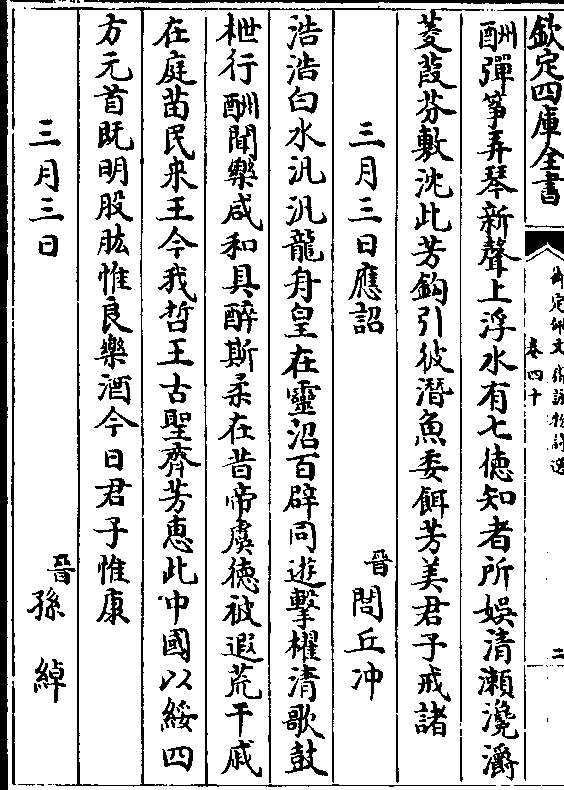 欽定四庫全書
御定佩文齋詠物詩選
卷四十
二
酬彈箏弄琴新聲上浮水有七徳知者所娯清瀬瀺灂
菱葭芬敷沈此芳鈎引彼潛魚委餌芳美君子戒諸
三月三日應詔 晉 閭丘冲
浩浩白水汎汎龍舟皇在靈沼百辟同遊擊櫂清歌鼓
枻行酬聞樂咸和具醉斯柔在昔帝虞德被遐荒干戚
在庭苗民來王今我哲王古聖齊芳惠此中國以綏四
方元首既明股肱惟良樂酒今日君子惟康
三月三日 晉 孫綽